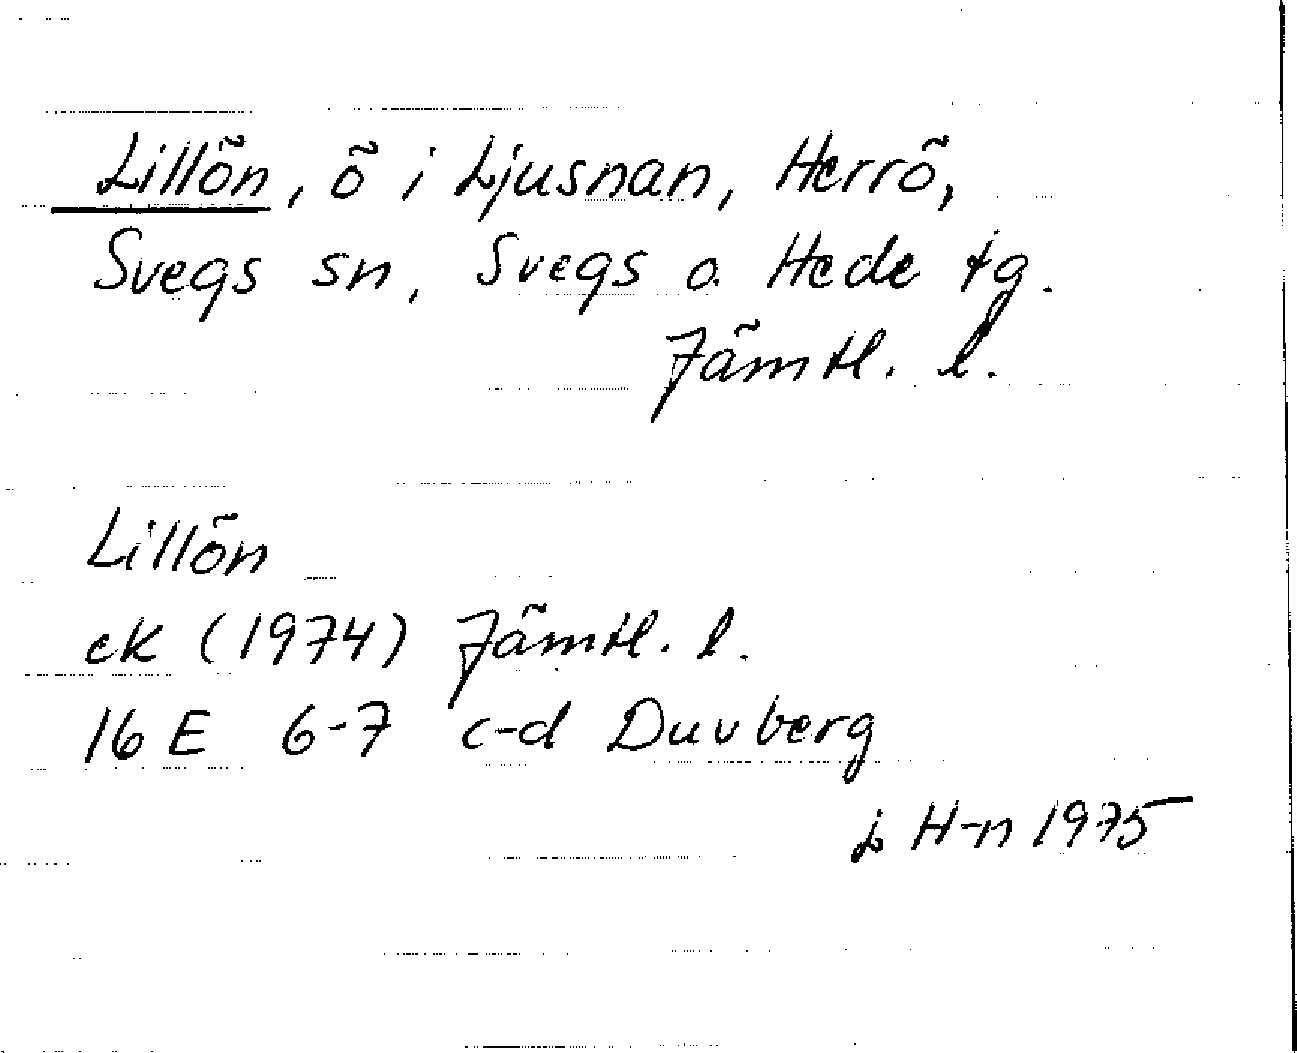 Lillön, ö i Ljusnan, Herrö,
Svegs sn, Svegs o. Hede tg.
Jämtl. l.
Lillön
ek (1974) Jämtl. l.
16 E 6-7 c-d Duvberg
L H-n 1975